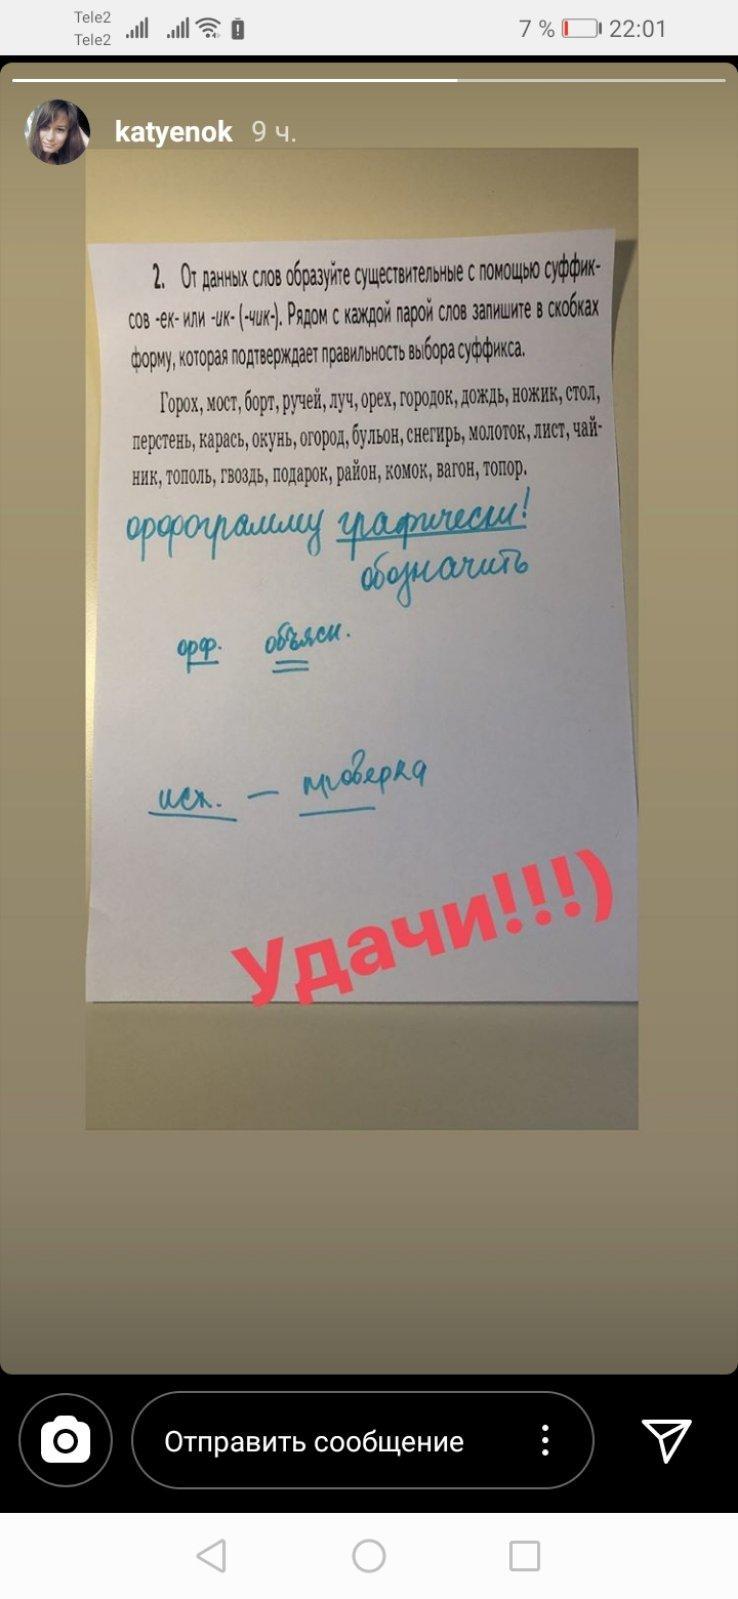 Tele2
Tele2
7 % 22:01
katyenok 9 ч.
2. От данных слов образуйте существительные с помощью суффик-
сов -ек- или -ик- (-чик-). Рядом с каждой парой слов запишите в скобках
форму, которая подтверждает правильность выбора суффикса.
Горох, мост, борт, ручей, луч, орех, городок, дождь, ножик, стол,
перстень, карась, окунь, огород, бульон, снегирь, молоток, лист, чай-
ник, тополь, гвоздь, подарок, район, комок, вагон, топор.
орфограмму графически!
обозначить
орф. объясн.
исх. — проверка
Удачи!!!)
Отправить сообщение